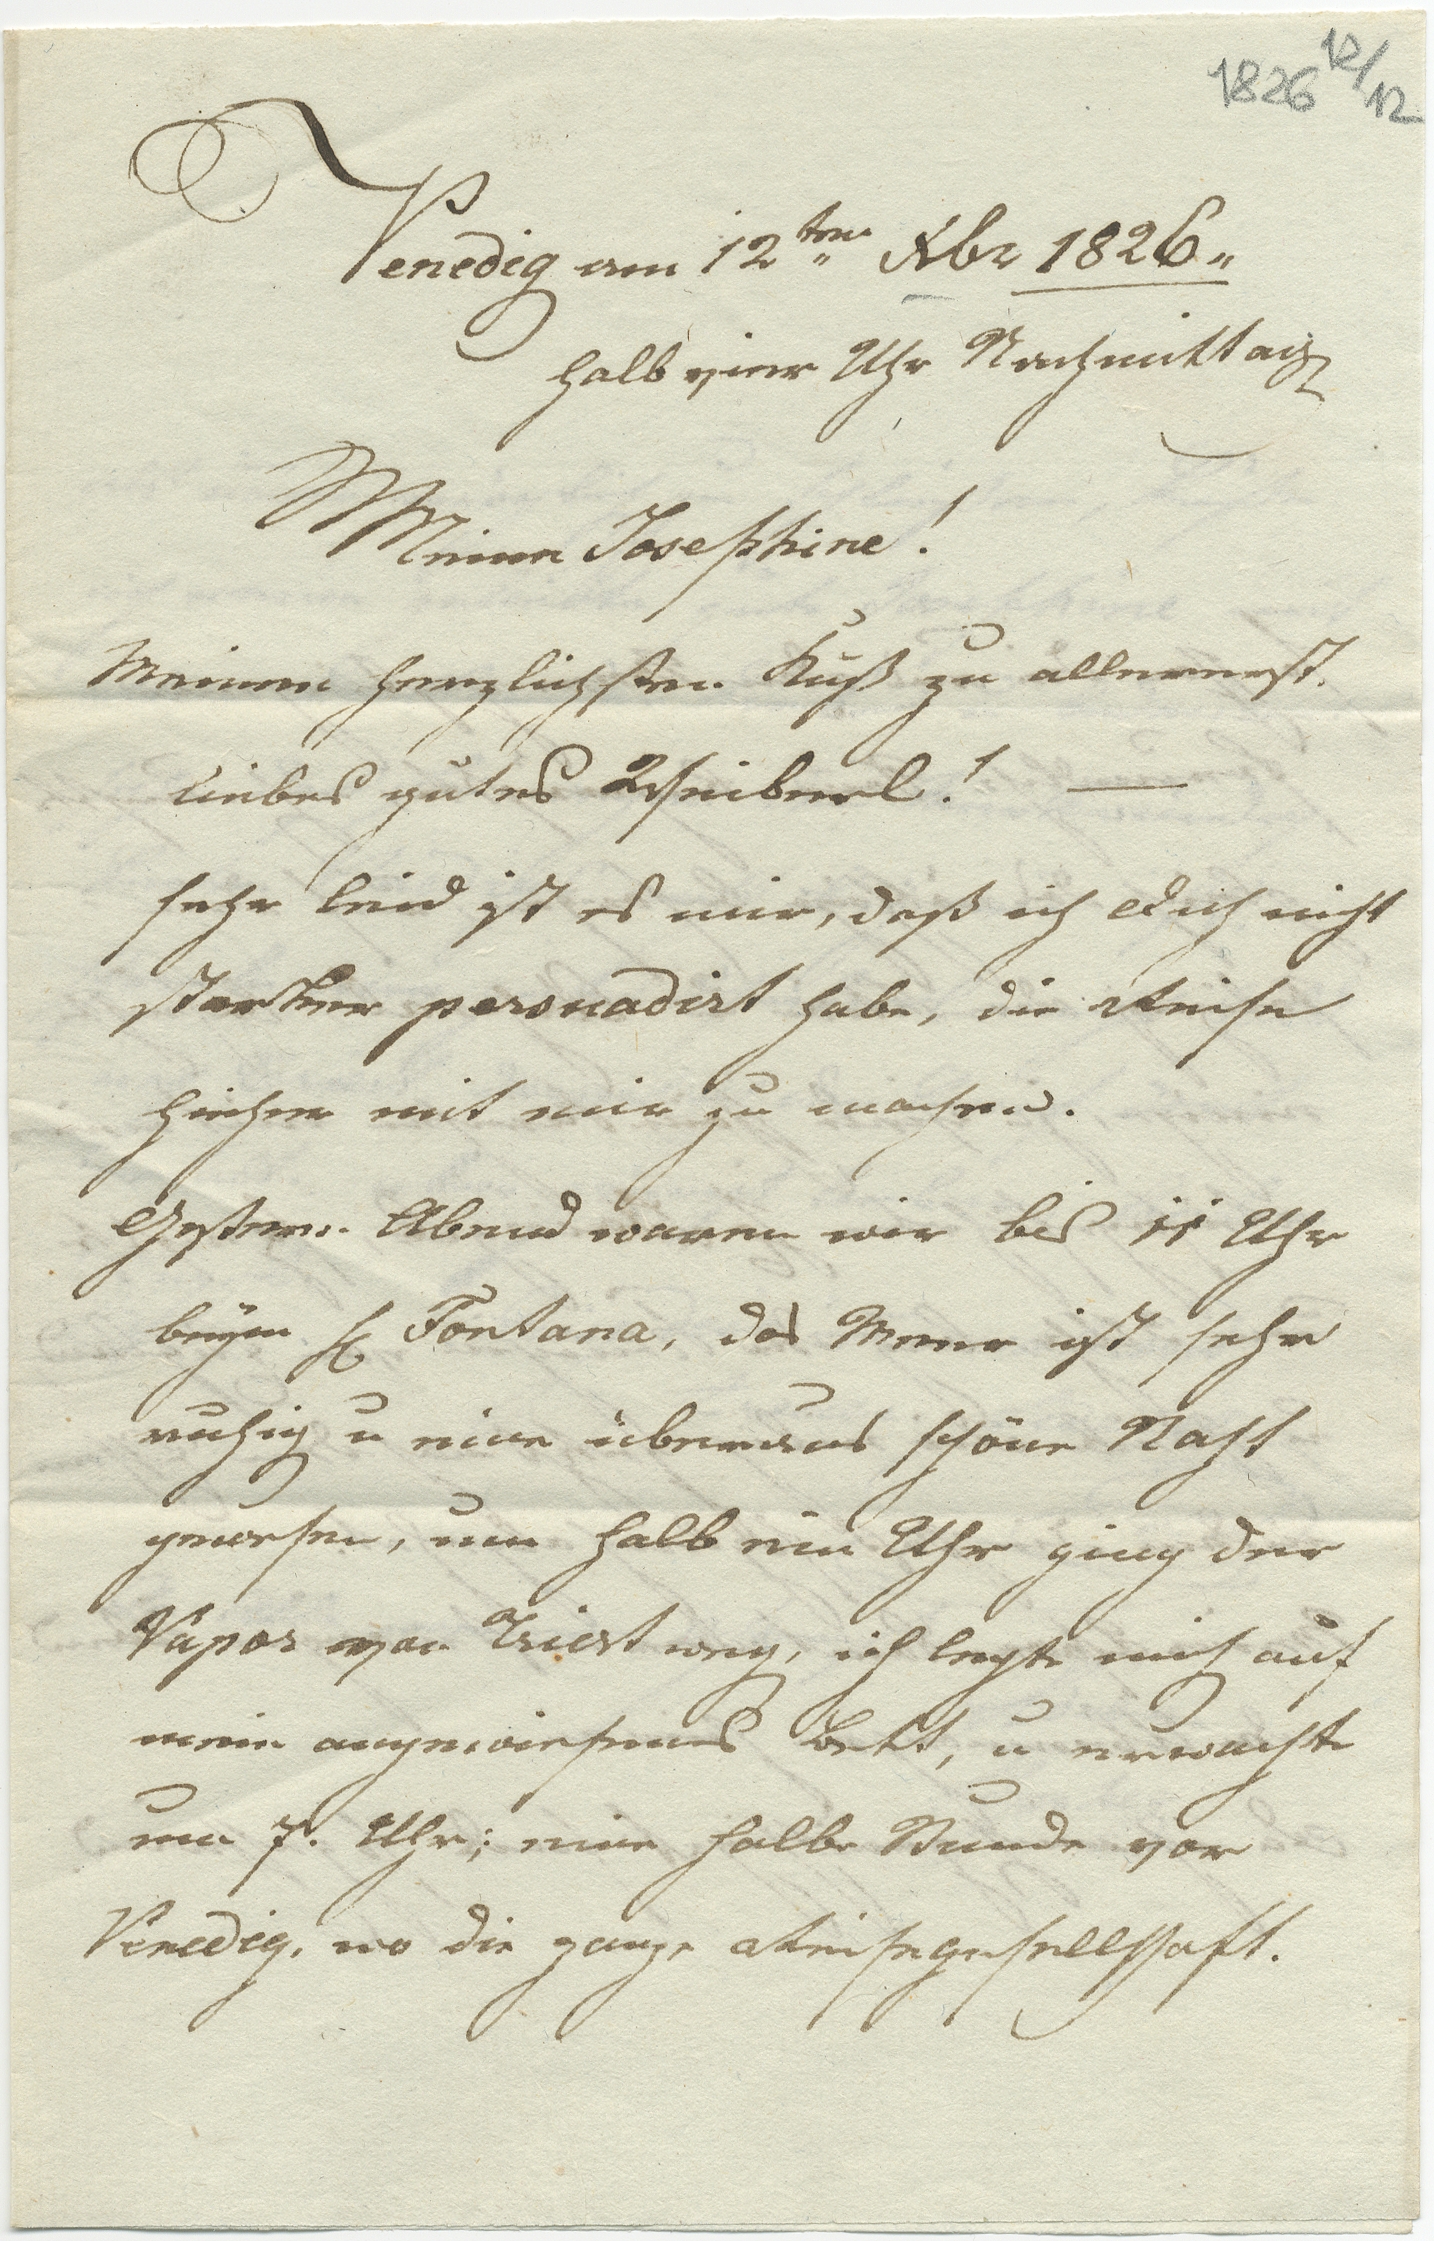 1826 12/12
Venedig am 12ten Xbr 1826
halb vier Uhr Nachmittag
Meine Josephine!
Meinen herzlichsten Kuß zu allererst.
liebes gutes Weiberl! —
sehr leid ist es mir, daß ich Dich nicht
starker persuadirt habe, die Reise
hieher mit mir zu machen.
Gestern Abend waren wir bis 11 Uhr
beym H Fontana, das Meer ist sehr
ruhig u eine überaus schöne Nacht
gewesen, um halb ein Uhr ging der
Vapor von Triest weg, ich legte mich auf
mein angewiesenes Bett, u erwachte
um 7. Uhr; eine halbe Stunde vor
Venedig, wo die ganze Reisegesellschaft.